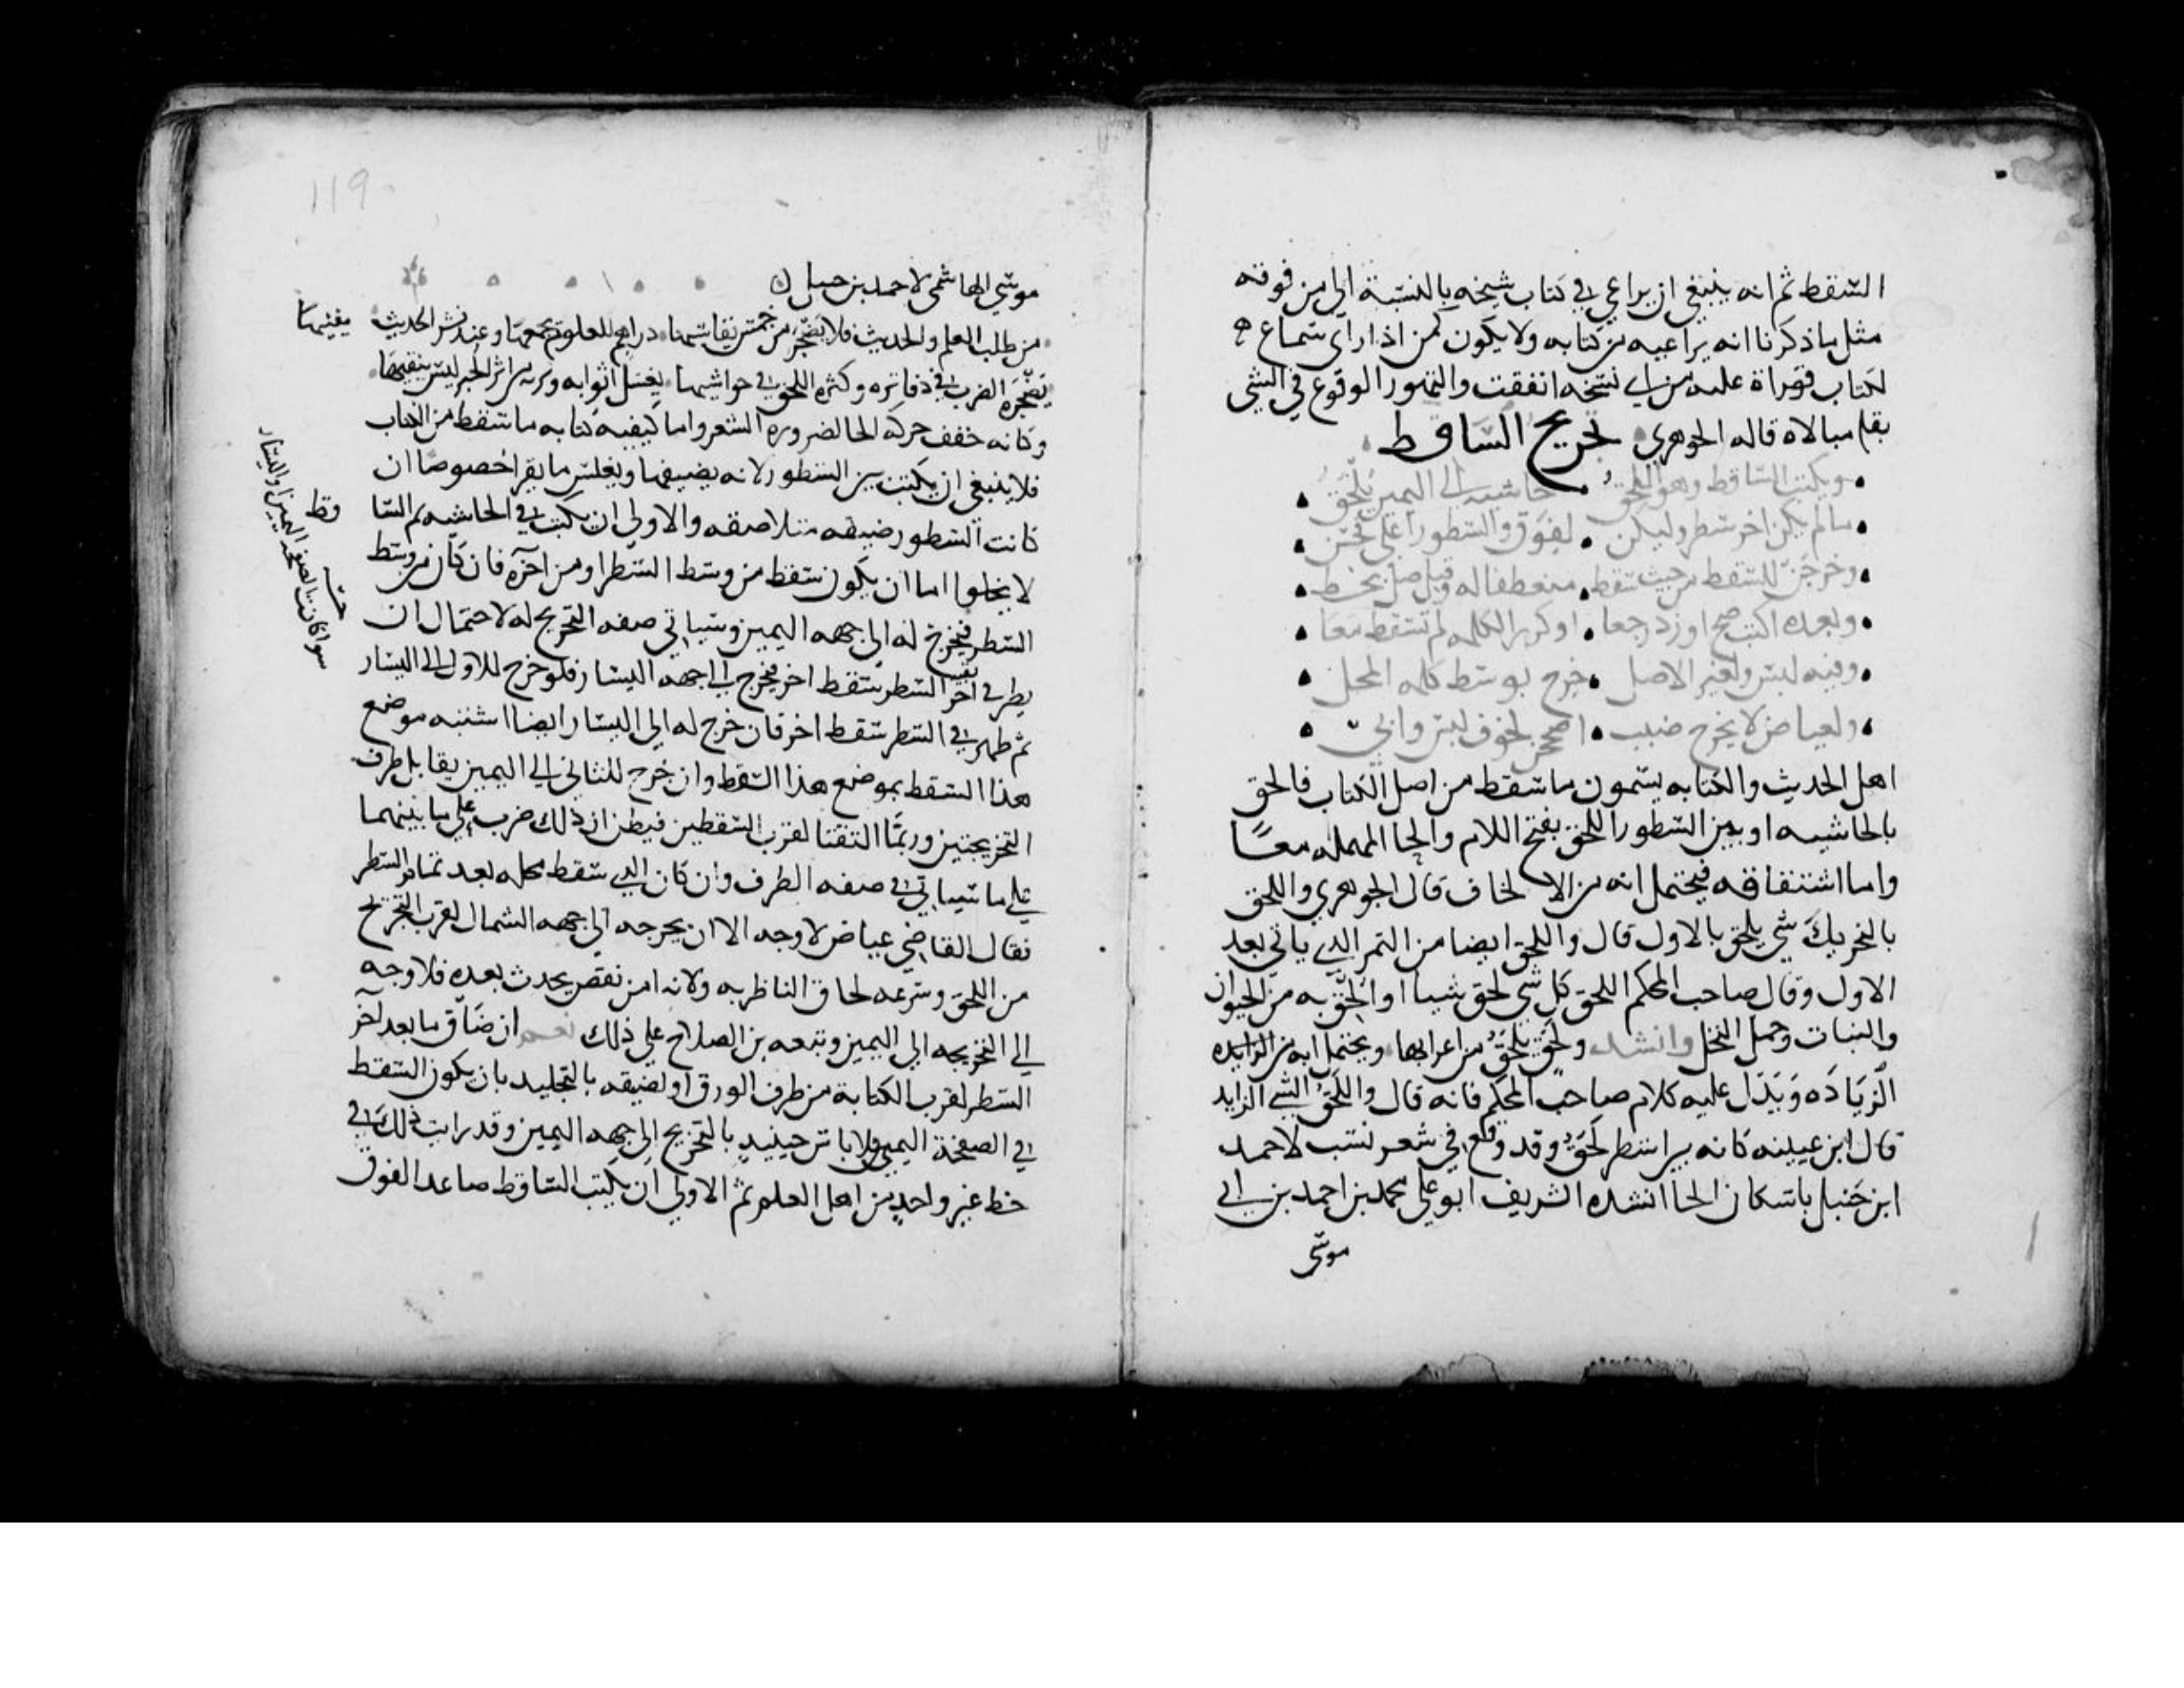 السقط ثم انه ينبغي ان يراعي في كتاب شيخه بالنسبة الى من فوقه
مثل ما ذكرنا انه يراعيه من كتابه ولا يكون كمن اذا راى سماع
لكتاب قراة عليه من اي نسخه اتفقت والتهور الوقوع في الشي
بقله مبالاه قاله الجوهري تخريج الساقط
ويكتب الساقط وهو اللحق حاشيه الى اليمين يلحق
ما لم يكن اخر سطر وليكن لفوق والسطور اعلى فحسن
وخرجن للسقط من حيث سقط منعطفا له وقيل صل بخط
وبعده اكتب صح او زد رجعا او كرر الكلمه لم تسقط معا
وفيه لبس ولغير الاصل خرج بوسط كلمه المحل
ولعياض لا يخرج ضبب او صححن لخوف لبس وابي
اهل الحديث والكتابه يسمون ما سقط من اصل الكتاب فالحق
بالحاشيه او بين السطور اللحق بفتح اللام والحا المهمله معا
واما اشتقاقه فيحتمل انه من الالحاق قال الجوهري واللحق
بالتحريك شي يلحق بالاول قال واللحق ايضا من التمر الذي ياتي بعد
الاول وقال صاحب المحكم اللحق كل شي لحق شيا او الحق به من الحيوان
والنبات وحمل النخل وانشد ولحق يلحق من اعرابها ويحتمل انه من الزايده
الزياده ويدل عليه كلام صاحب المحكم فانه قال واللحق الشي الزايد
قال ابن عيينه كانه بين اسطر لحق وقد وقع في شعر نسب لاحمد
ابن حنبل باسكان الحا انشده الشريف ابو علي محمد بن احمد بن ابي
موسى
119
موسى الهاشمي لاحمد بن حنبل
من طلب العلم والحديث فلا يضجر من خمسة يقاسيها دراهم للعلوم يجمعها وعند نشر الحديث يفنيها
يضجره الضرب في دفاتره وكثره اللحق في حواشيها يغسل اثوابه وبزته من اثر الحبر ليس ينقيها
وكانه خفف حركه الحا لضروره الشعر واما كيفيه كتابه ما سقط من الكتاب
فلا ينبغي ان يكتب بين السطور لانه يضيقها ويغلس ما يقرا خصوصا ان
كانت السطور ضيقه متلاصقه والاولى ان يكتب في الحاشيه ثم السا
قط
لا يخلوا اما ان يكون سقط من وسط السطر او من اخره فان كان من وسط
السطر فيخرج له الى جهه اليمين وسياتي صفه التخريج له لاحتمال ان
يطرا في بقيه اخر السطر سقط اخر فيخرج الى جهه اليسار فلو خرج للاول الى اليسار
ثم ظهر في السطر سقط اخر فان خرج له الى اليسار ايضا اشتبه موضع
هذا السقط بموضع هذا السقط وان خرج للثاني الى اليمين يقابل طرف
التخريجتين وربما التقتا لقرب السقطين فيظن ان ذلك ضرب على ما بينهما
على ما سياتي في صفه الطرف وان كان الذي سقط محله بعد تمام السطر
فقال القاضي عياض لا وجه الا ان يخرجه الى جهه الشمال لقرب التخريج
من اللحق وسرعه لحاق الناظر به ولانه امن نقص يحدث بعده فلا وجه
الى التخريجه الى اليمين وتبعه بن الصلاح على ذلك نعم ان ضاق ما بعد اخر
السطر لقرب الكتابة من طرف الورق او لضيقه بالتجليد بان يكون السقط
في الصفحة اليمنى فلا باس حينيد بالتخريج الى جهه اليمين وقد رايت ذلك في
خط غير واحد من اهل العلم ثم الاولى ان يكتب الساقط صاعدا لفوق
سوا كانت الصفحه اليمين او اليسار